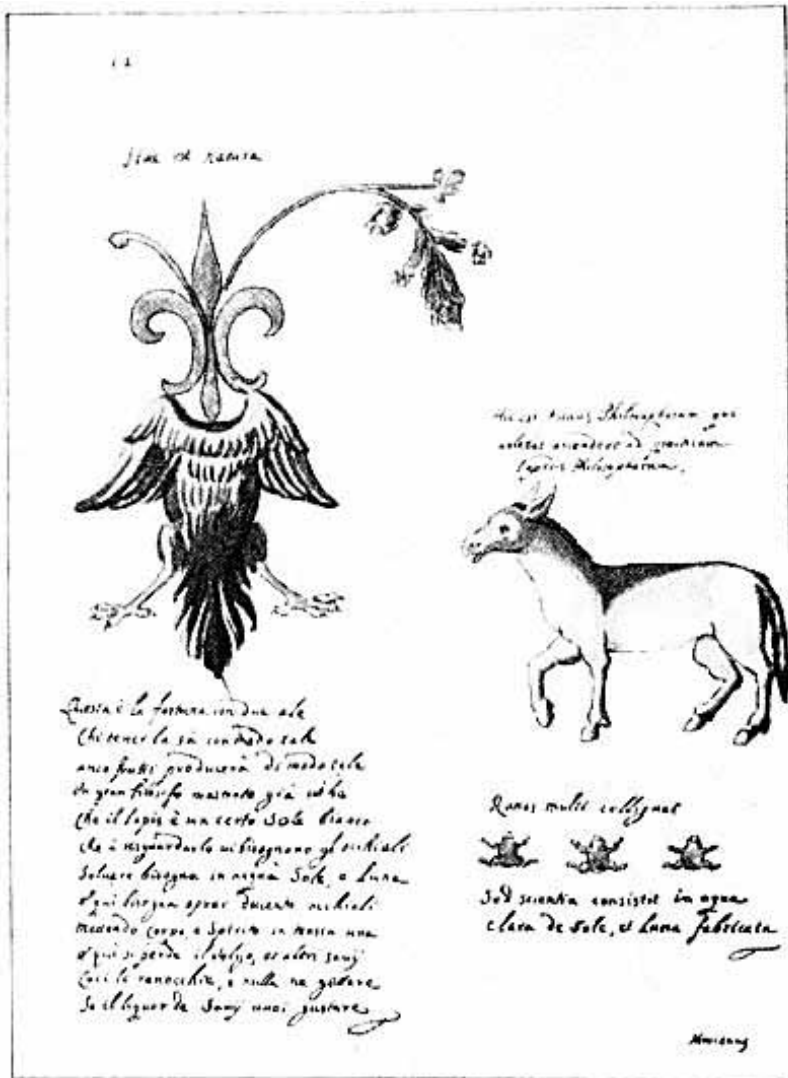 12
est natura
Hic est Philosophorum qui
ad
Lapidis Philosophorum.
Questa è la fortuna con due ale
Chi tener la sà con modo tale
frutti producerà di modo tale
Un gran filosofo già
Che il lapis è un certo Sole bianco
Che à risguardarlo vi bisognono gl occhiali
Soluere bisogna in acqua Sole, e Luna
E qui bisogna aprar ducento occhiali
corpo, e Spirito in massa una
E qui si perde il volgo, et altri
le ranocchie, e nulla ne gettare
Se il liquor de vuoi gustare
Ranas multi colligunt
Sed scientia consistit in aqua
clara de Sole, et Luna fabricata